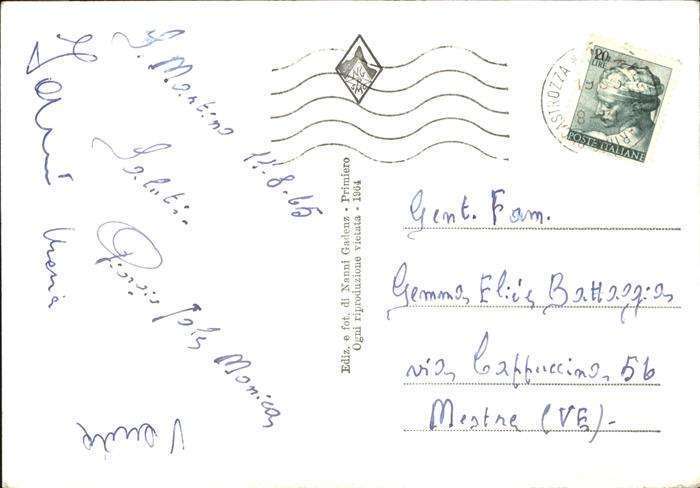 S. Martino 11.8.65
Saluti
Giorgio
Monica
Maria
Ediz. e fot. di Nanni Gadenz - Primiero
Ogni riproduzione vietata - 1964
20
LIRE
POSTE ITALIANE
Gent. Fam.
Gemma Elia Battaggia
via Cappuccina 56
Mestre (VE)-